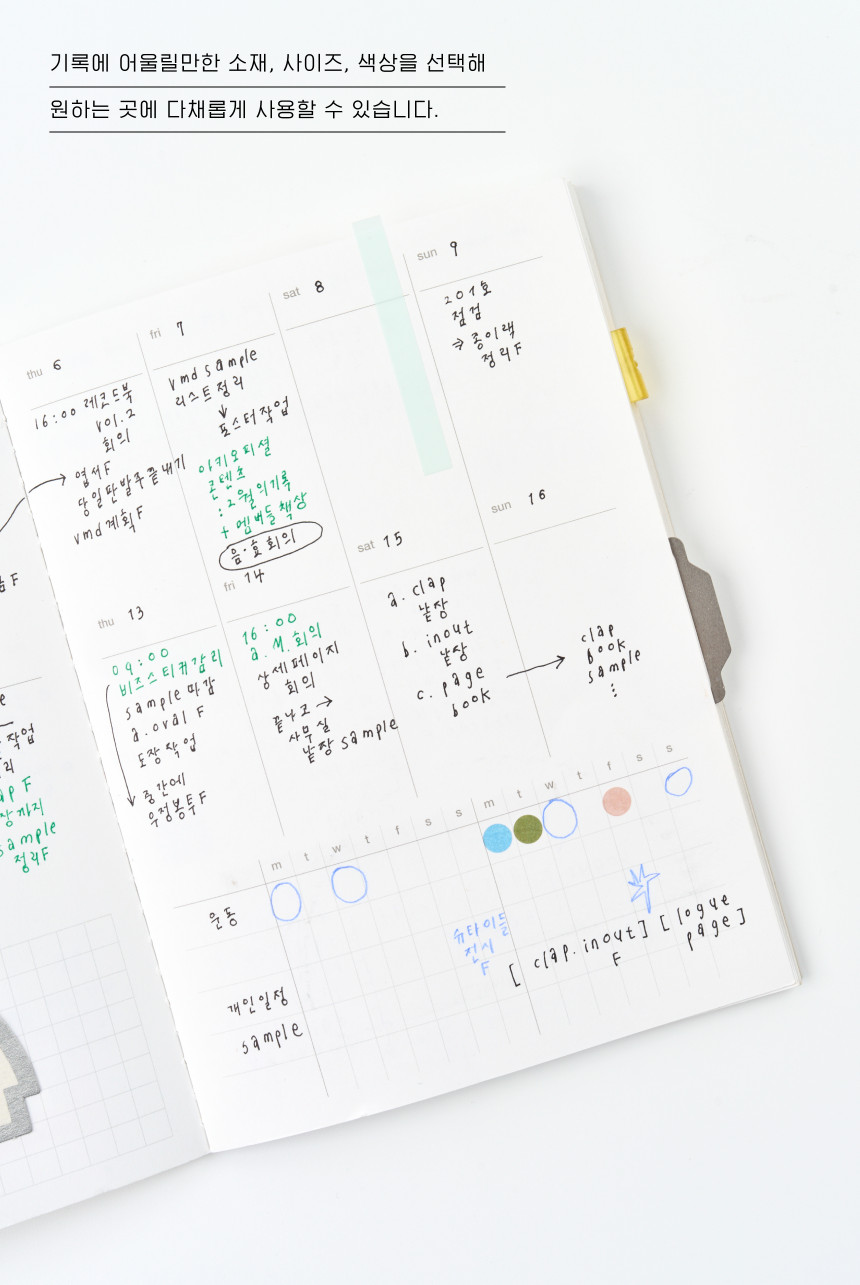 기록에 어울릴만한 소재, 사이즈, 색상을 선택해
원하는 곳에 다채롭게 사용할 수 있습니다.
thu 6
16:00 레코드북
vol.2
회의
엽서F
당일판발주끝내기
vmd계획F
fri 7
vmd sample
리스트정리
↓
포스터작업
아키오피셜
콘텐츠
:2월의기록
+멤버들책상
음·효회의
sat 8
sun 9
201호
점검
⇒종이랙
정리F
thu 13
09:00
비즈스티커감리
sample마감
a.oval F
도장작업
중간에
우정봉투F
fri 14
16:00
a.M.회의
상세페이지
회의
끝나고→
사무실
낱장sample
sat 15
a. clap
낱장
b. inout
낱장
c. page
book
sun 16
clap
book
sample
⋮
e
작업
리
ap F
장까지
sample
정리F
m t w t f s s m t w t f s s
운동
슈타이들
전시
F
[clap. inout]
F
[logue
page]
개인일정
sample